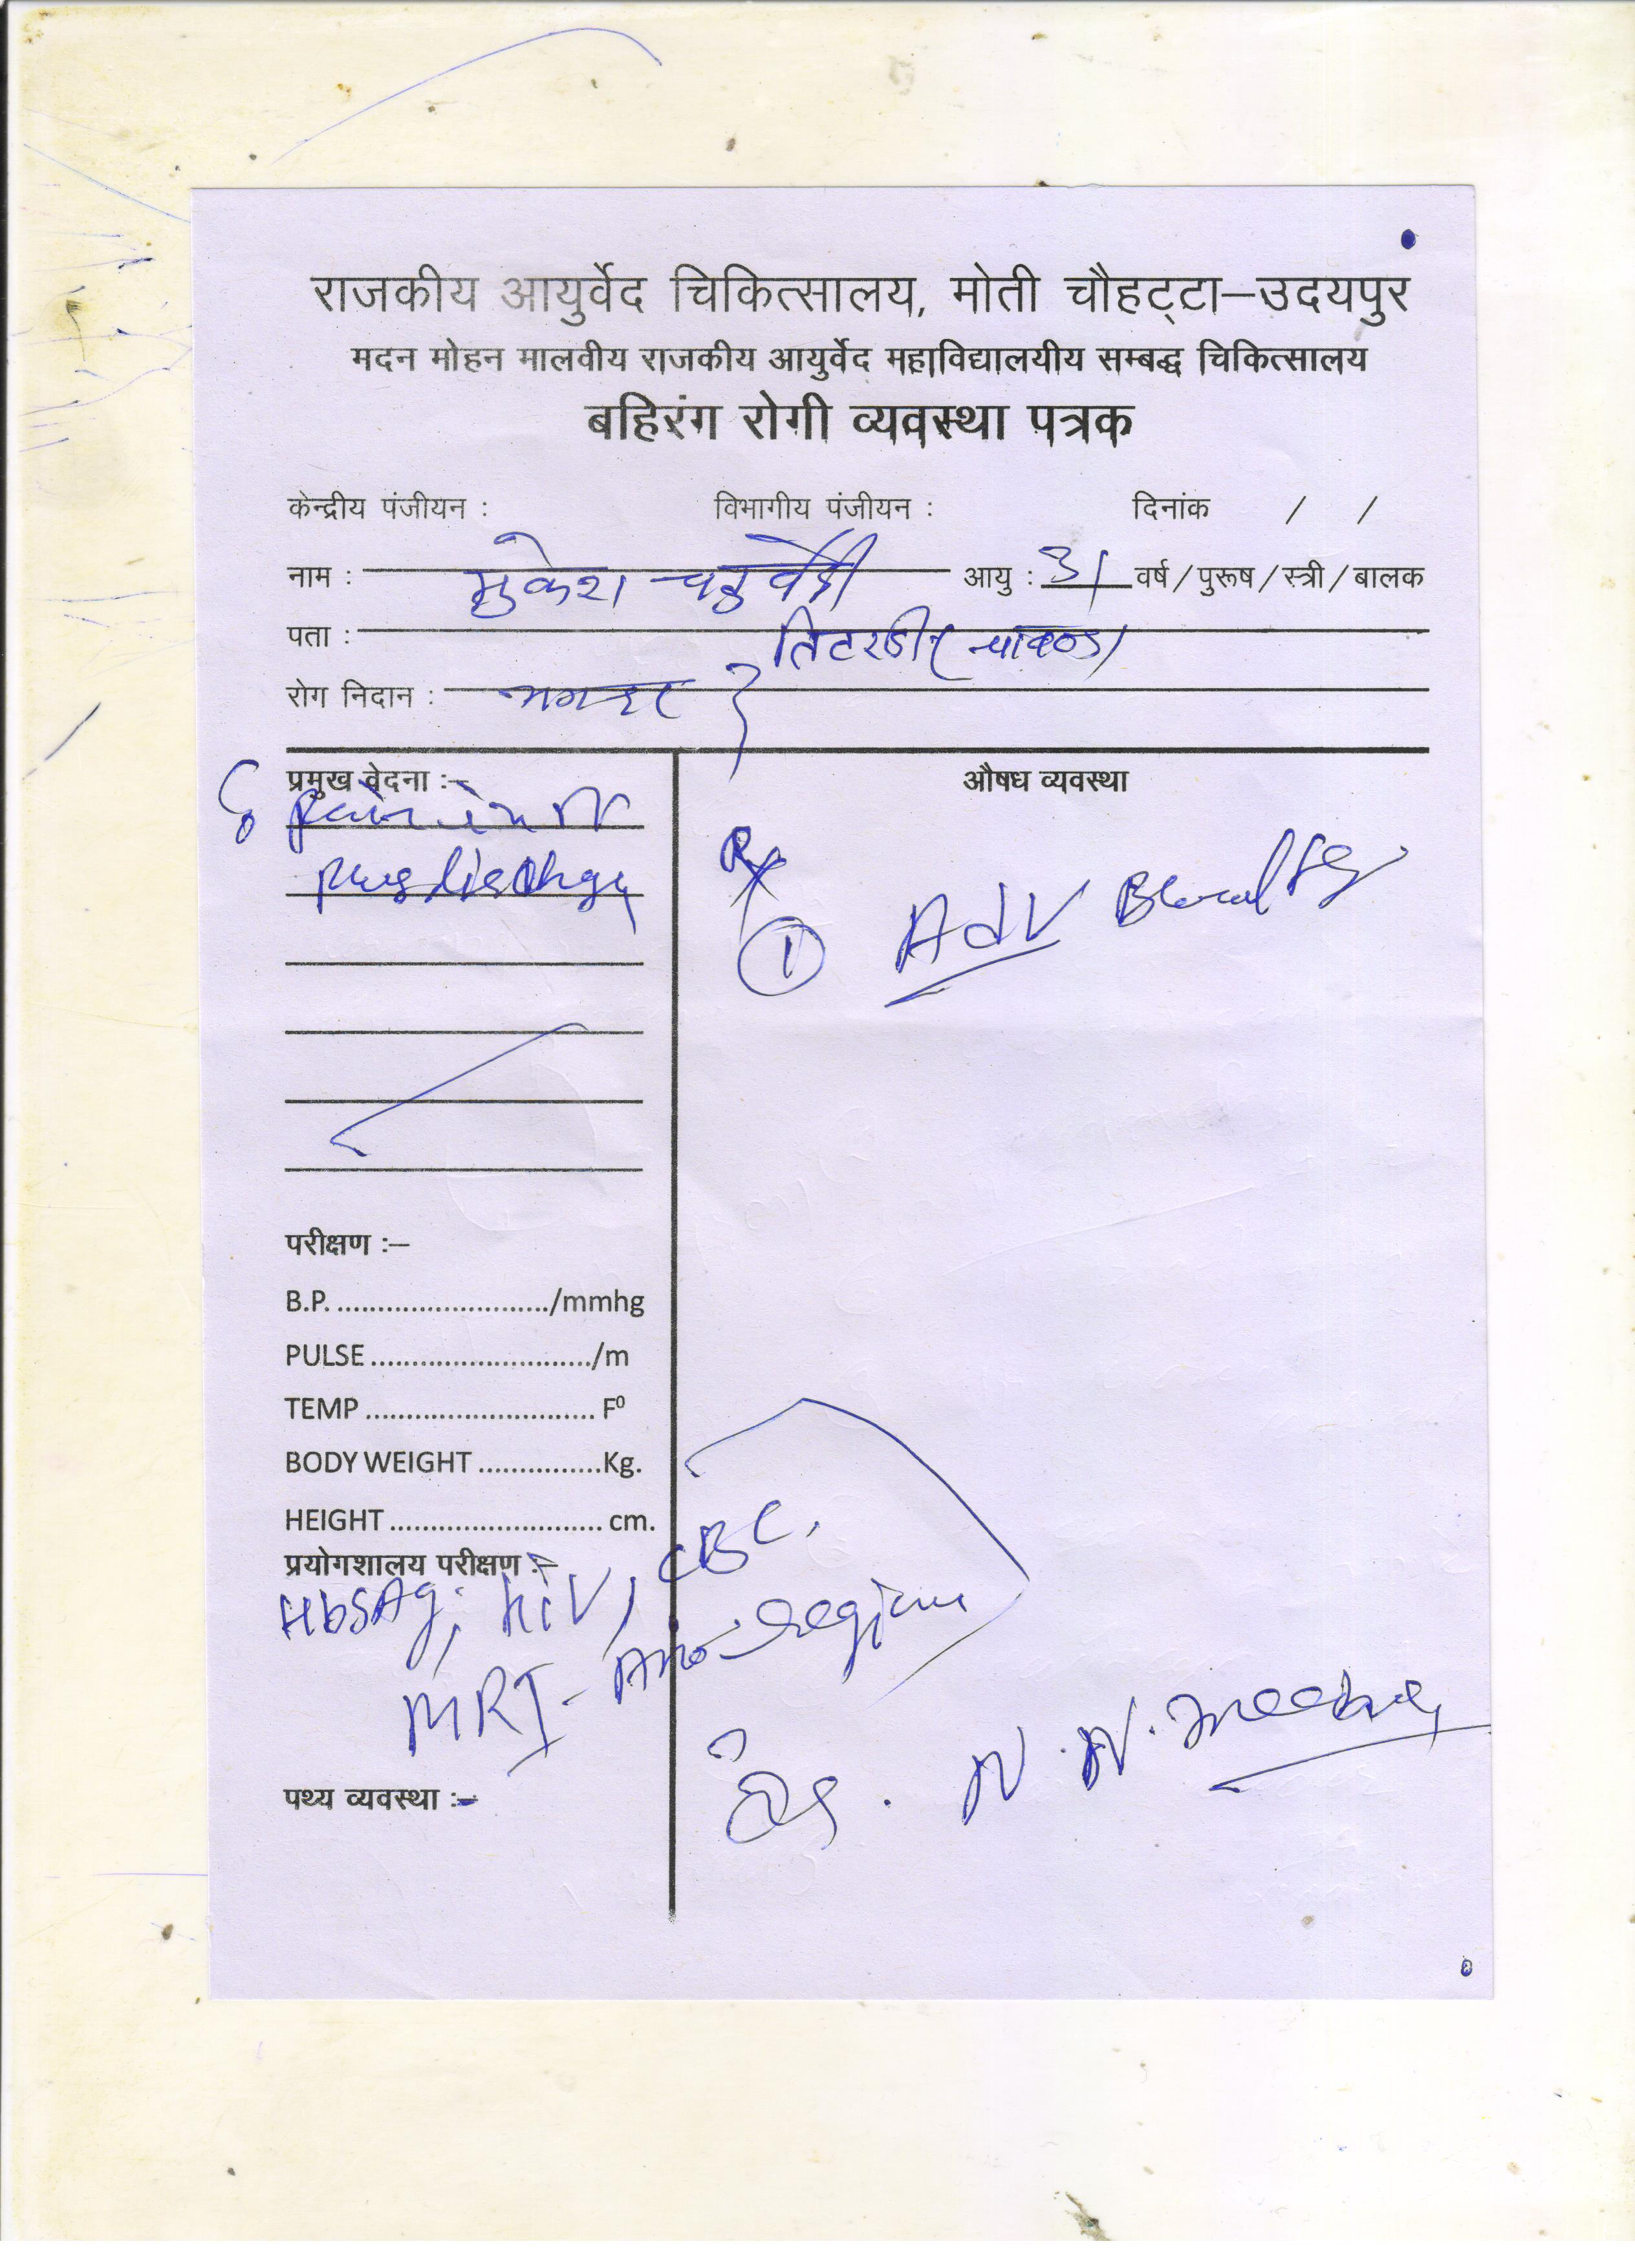 राजकीय आयुर्वेद चिकित्सालय, मोती चौहट्टा–उदयपुर
मदन मोहन मालवीय राजकीय आयुर्वेद महाविद्यालयीय सम्बद्ध चिकित्सालय
बहिरंग रोगी व्यवस्था पत्रक
केन्द्रीय पंजीयन : विभागीय पंजीयन : दिनांक / /
नाम : मुकेश चतुर्वेदी आयु : 31 वर्ष/पुरूष/स्त्री/बालक
पता :
रोग निदान : भगन्दर
प्रमुख वेदना :– औषध व्यवस्था
pain in
pus discharge
Rx
① Adv Blood
परीक्षण :–
B.P. ........................../mmhg
PULSE .........................../m
TEMP ............................ F⁰
BODY WEIGHT ...............Kg.
HEIGHT .......................... cm.
प्रयोगशालय परीक्षण :–
HbsAg, hiV, CBC.
MRI - Ano-region
Dr. N.N. meena
पथ्य व्यवस्था :–